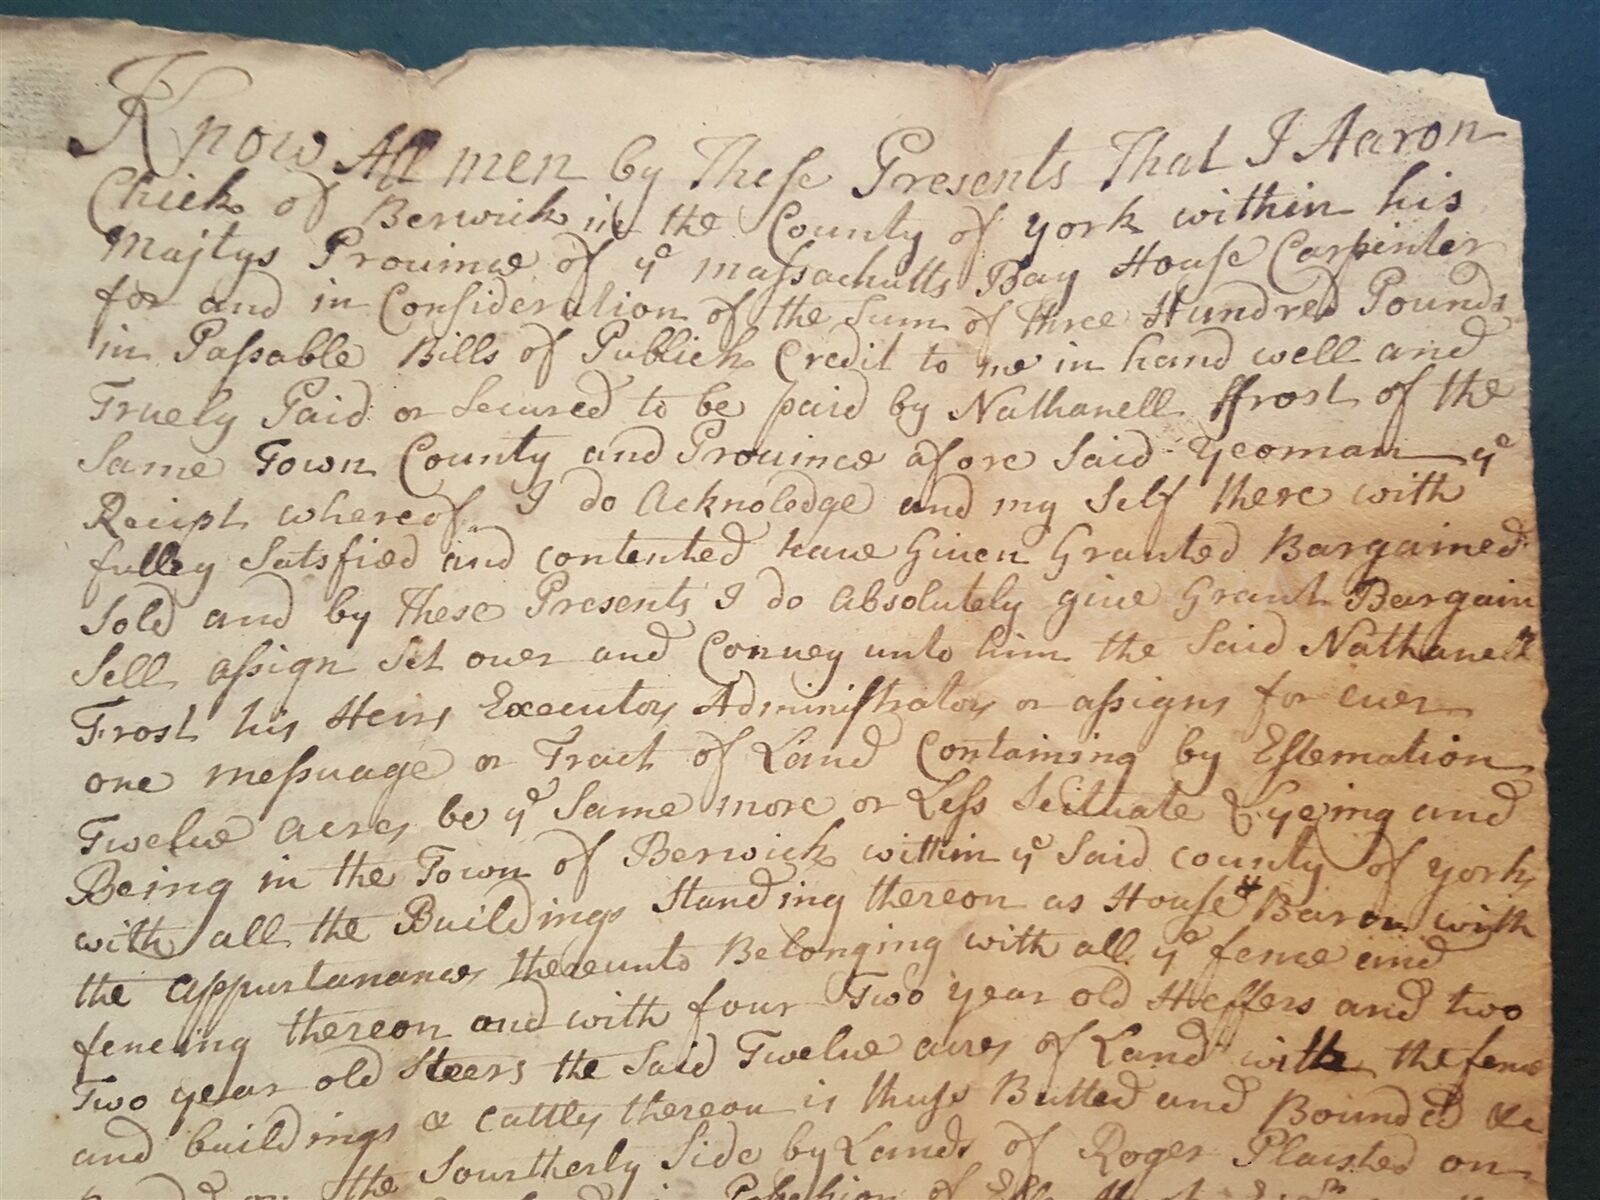 Know All men by These Presents That I Aaron
Chick of Berwick in the County of york within his
Majtys Prouince of ye Massachutts Bay House Carpinter
for and in Consideration of the Sum of Three Hundred Pounds
in Passable Bills of Publick Credit to me in hand well and
Truely Paid or Secured to be paid by Nathanell ffrost of the
Same Town County and Prouince afore Said Yeoman ye
Recipt whereof I do Acknoledge and my Self there with
fulley Satsfied and contented haue Giuen Granted Bargained
Sold and by These Presents I do Absolutely giue Grant Bargain
Sell assign Set ouer and Conuey unto him the Said Nathanell
Frost his Heirs Executors Administrators or assigns for euer
one messuage or Tract of Land Containing by Estemation
Twelue acres be ye Same more or Less Scituate Lyeing and
Being in the Town of Berwick within ye Said county of york
with all the Buildings Standing thereon as House & Baron with
the appurtanances thereunto Belonging with all ye fence and
fenceing thereon and with four Two year old Heffers and two
Two year old Steers the Said Twelue acres of Land with the fence
and buildings & cattles thereon is thuss Butted and Bounded &c
the Sourtherly Side by Lands of Roger Plaisted on
Possession of